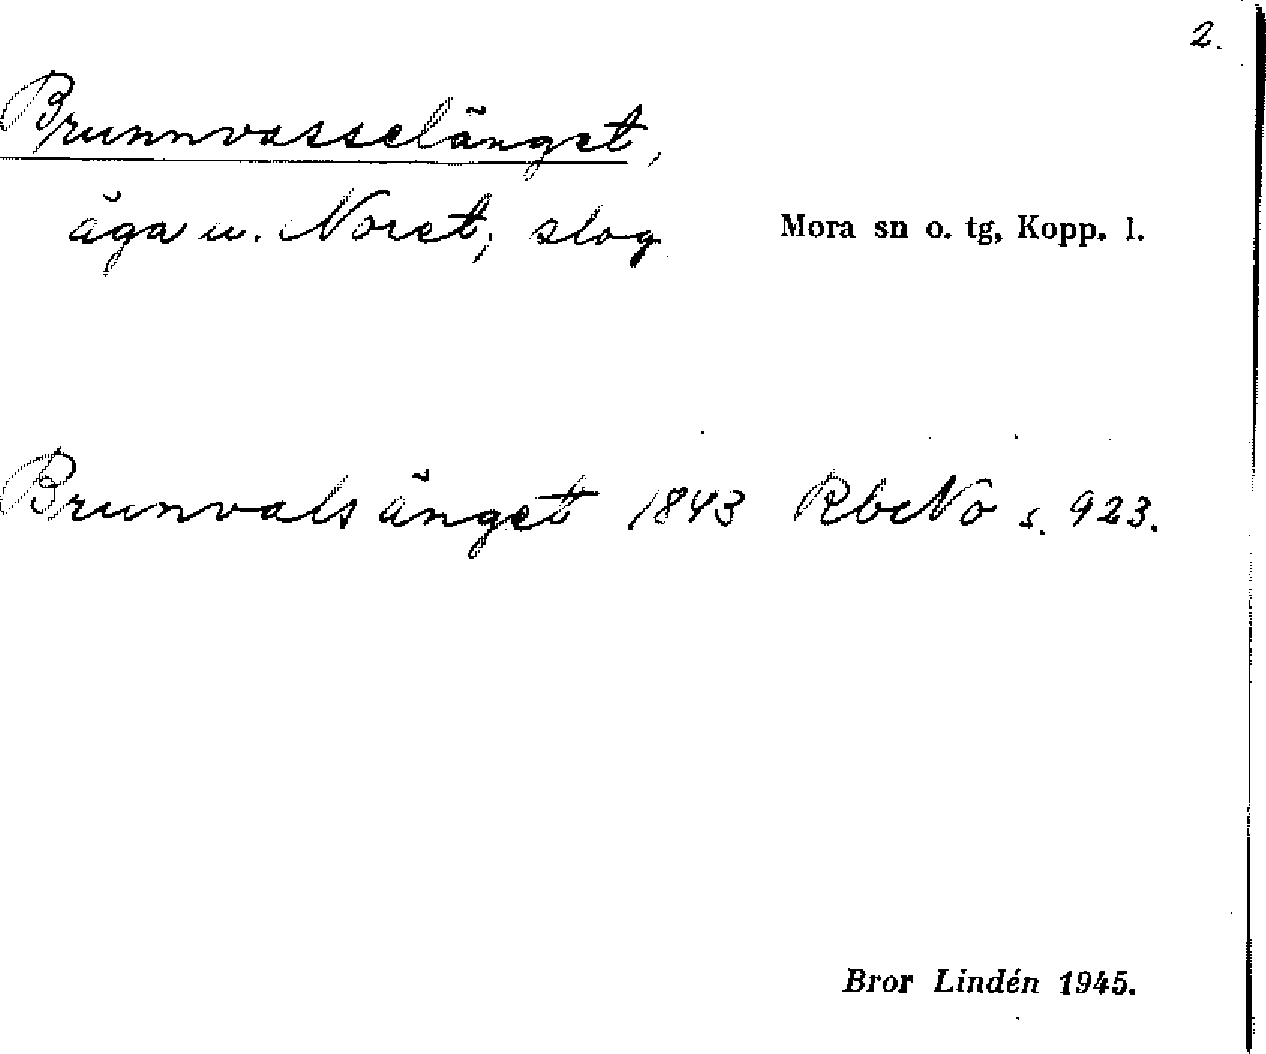 2.
Brunnvasselänget,
äga u. Noret; slog
Mora sn o. tg, Kopp. l.
Brunvalsänget 1843 RbcNo s. 923.
Bror Lindén 1945.